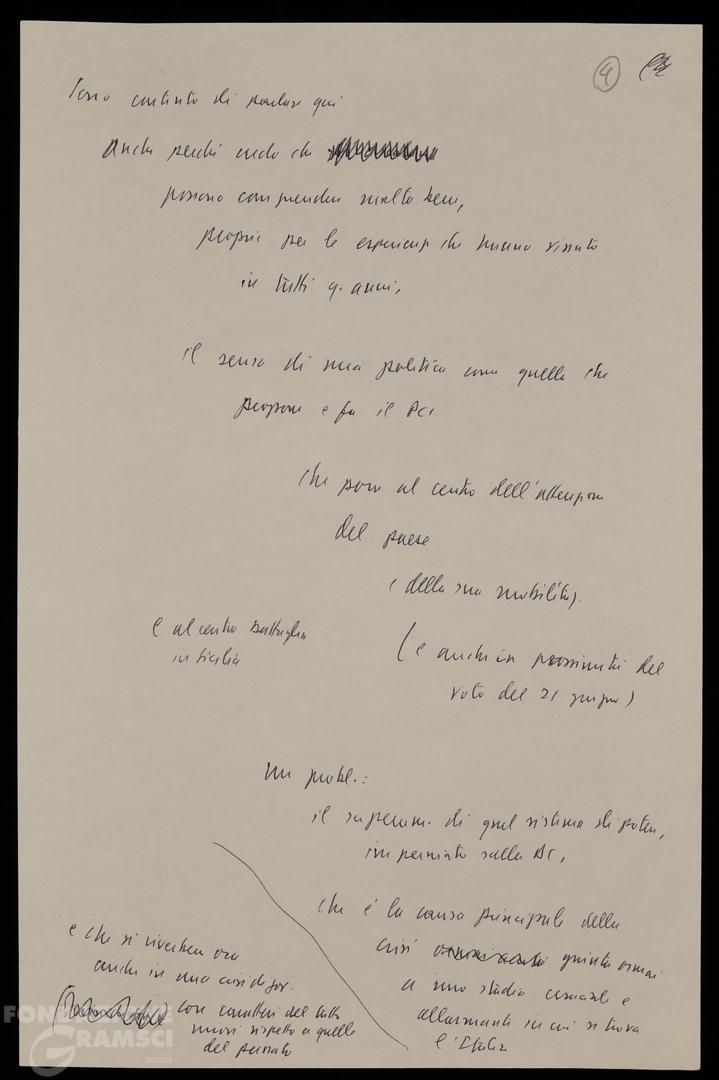 4
Sono contento di parlare qui
anche perché credo che
possono comprendere molto bene,
proprio per le esperienze che hanno vissuto
in tutti q. anni,
il senso di una politica come quella che
propone e fa il PCI
che pone al centro dell'attenzione
del paese
(della sua mobilità).
e al centro battaglia
in Sicilia
(e anche in prossimità del
voto del 21 giugno)
un probl.:
il superam. di quel sistema di potere,
imperniato sulla DC,
che è la causa principale della
crisi giunta ormai
a uno stadio cruciale e
allarmante in cui si trova
l'Italia
e che si riversa ora
anche in una crisi di gov.
con caratteri del tutto
nuovi rispetto a quelle
del passato
FONDAZIONE
GRAMSCI
onlus